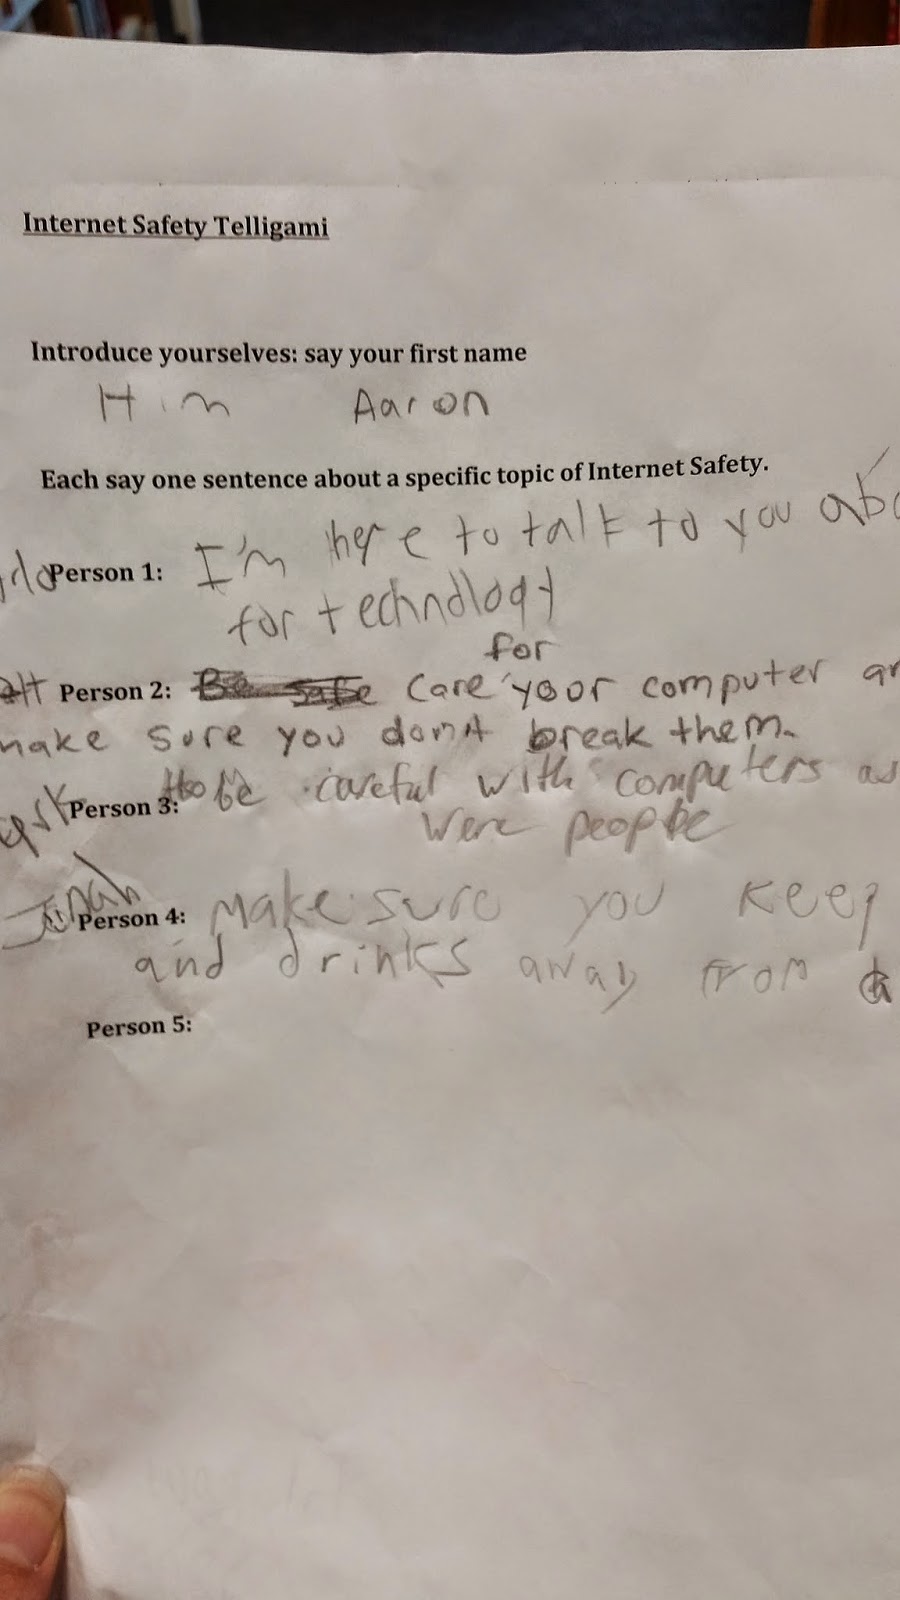 Internet Safety Telligami
Introduce yourselves: say your first name
H i m Aaron
Each say one sentence about a specific topic of Internet Safety.
I'm here to talk to you abo
Person 1:
for technology
for
Person 2: Be safe care your computer an
make sure you don't break them.
be careful with computers as
Person 3:
were people
Jonah
Person 4: Make sure you keep
and drinks away from
Person 5: